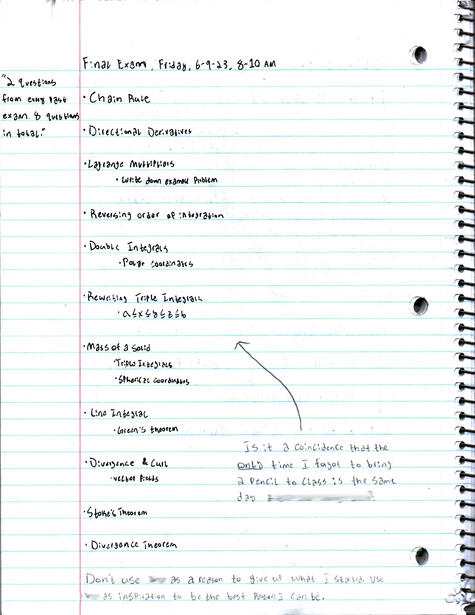 Final Exam, Friday, 6-9-23, 8-10 AM
"2 Questions
from every past
exam. 8 questions
in total."
• Chain Rule
• Directional Derivatives
• Lagrange Multipliers
• Write down example Problem
• Reversing order of integration
• Double Integrals
• Polar coordinates
• Rewriting Triple Integrals
• Mass of a Solid
• Triple Integrals
• Spherical coordinates
• Line Integral
• Green's theorem
• Divergence & Curl
• vector fields
• Stoke's Theorem
• Divergence Theorem
Is it a coincidence that the
only time I forgot to bring
a pencil to class is the same
day
Don't use as a reason to give up what I started. Use
as inspiration to be the best person I can be.